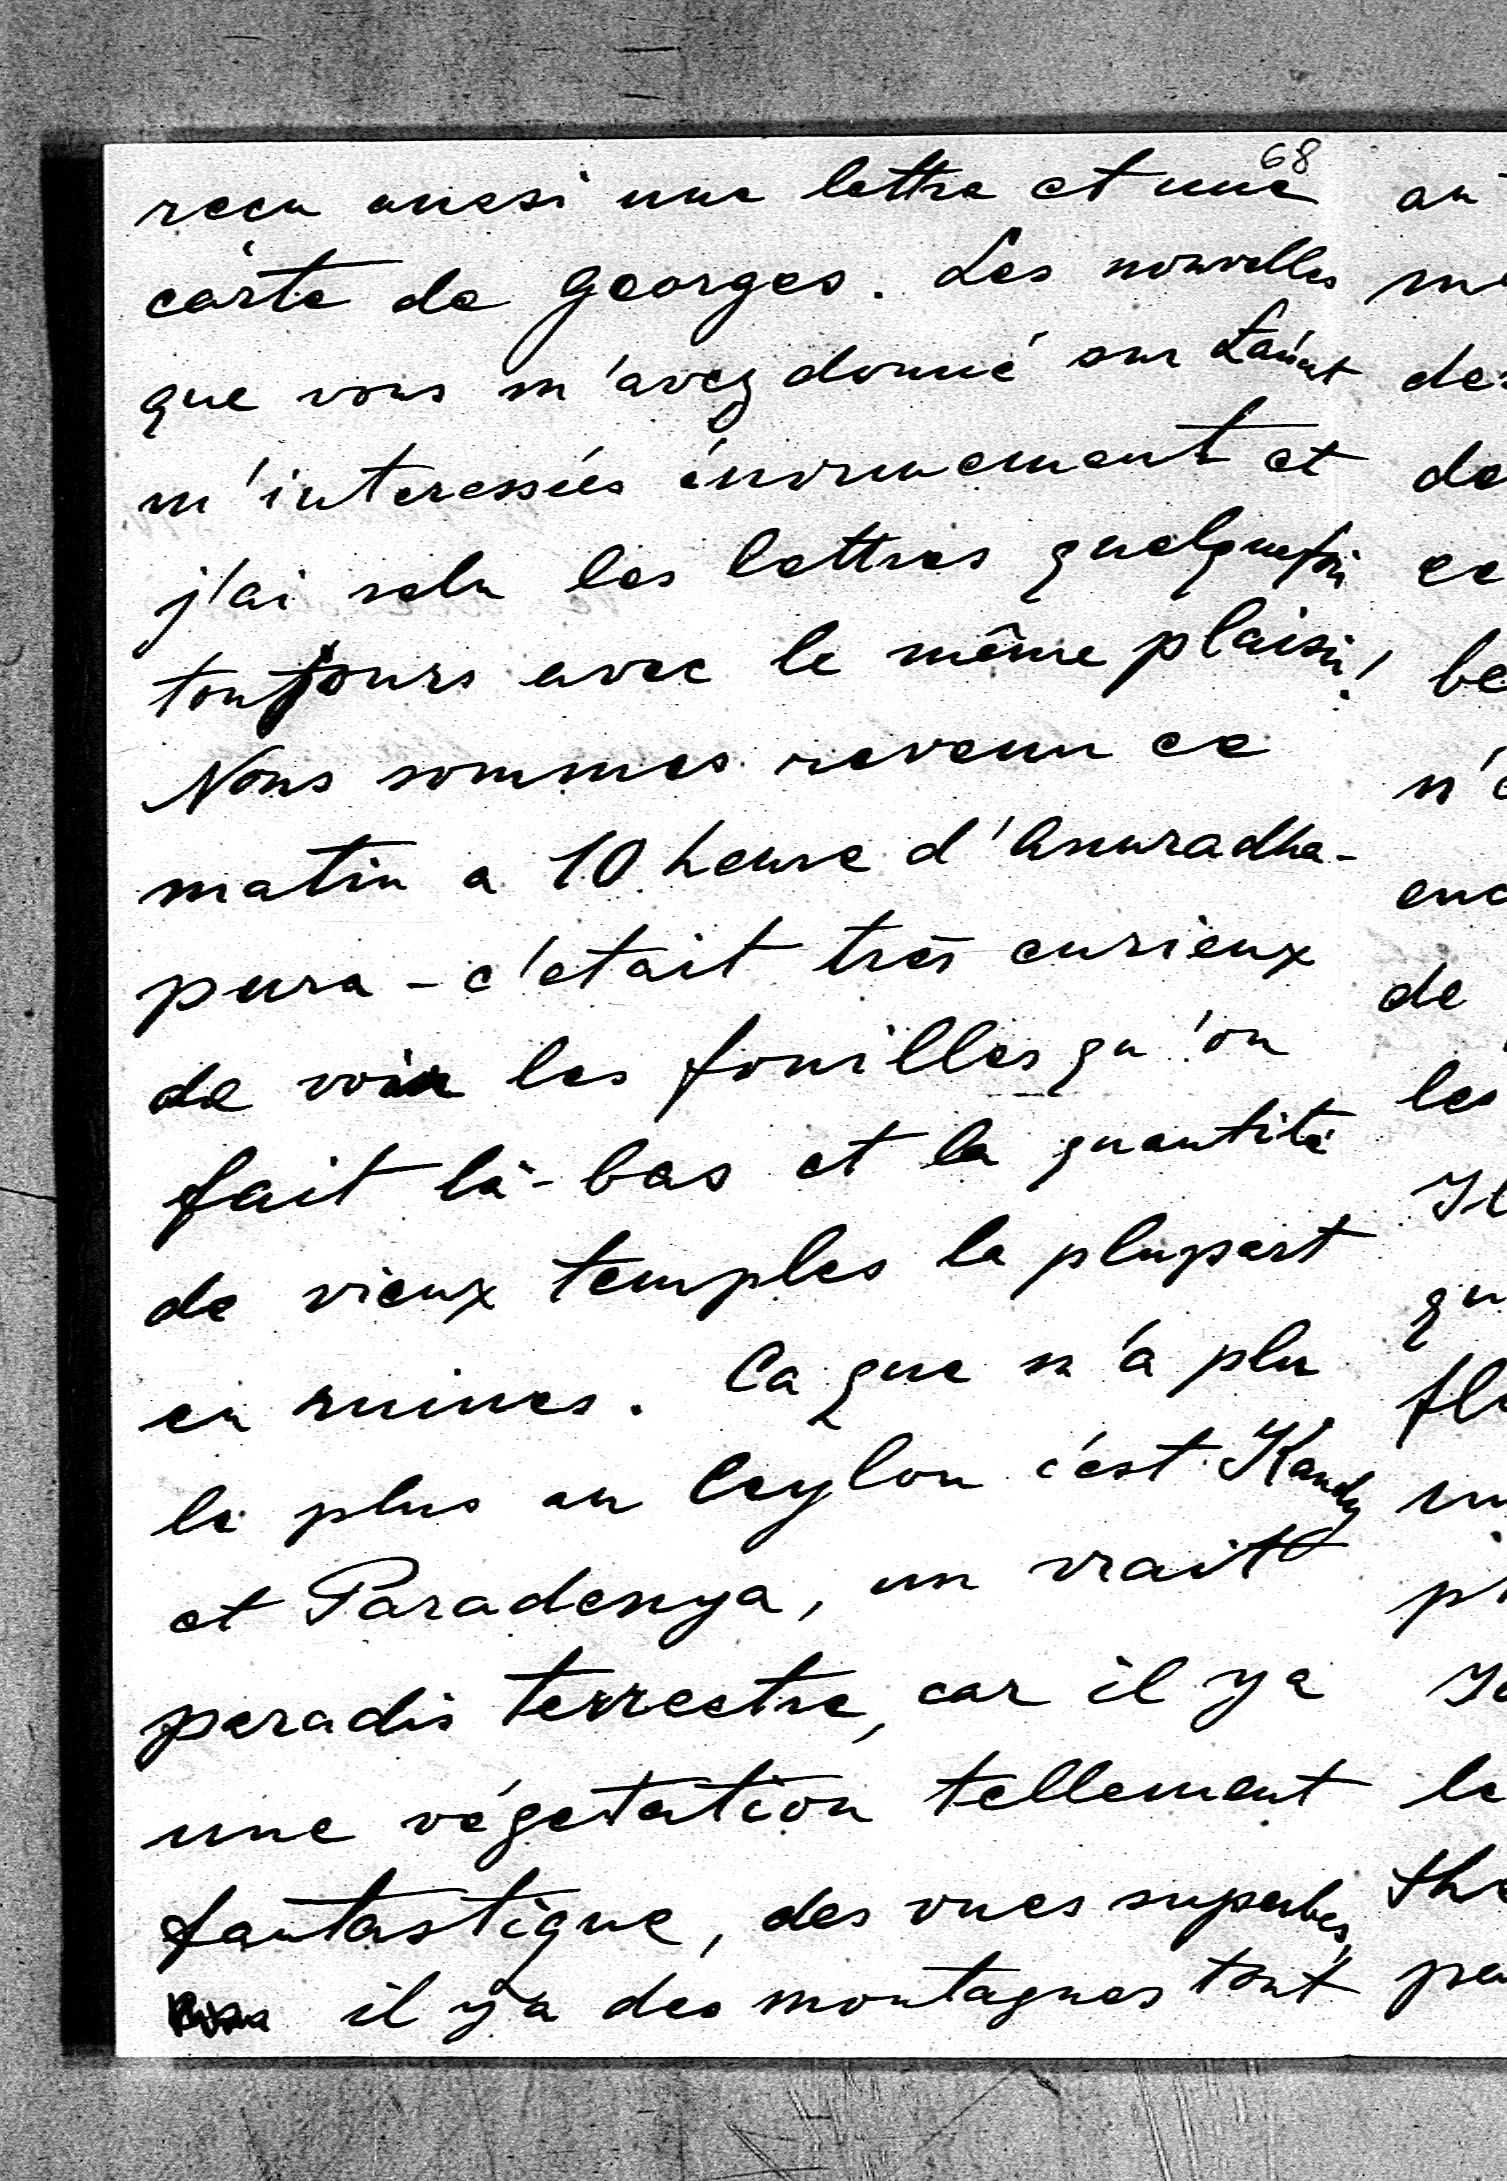 68
reçu aussi une lettre et une
carte de Georges. Les nouvelles
que vous m'avez donné sur
m'interessées énormement et
j'ai relu les lettres quelquefois
toujours avec le même plaisir!
Nous sommes revenu ce
matin a 10 heure d'Anuradha-
pura - c'etait très curieux
de voir les fouilles qu'on
fait là-bas et la quantité
de vieux temples la plupart
en ruines. Ca que m'a plu
le plus en Ceylon c'est Kandy
et Paradenya, un vrait
paradis terrestre, car il ya
une végetation tellement
fantastique, des vues superbes,
il y a des montagnes tout
an
me
des
de
ce
be
n'
enc
de
les
Il
qu
fl
pr
le
the